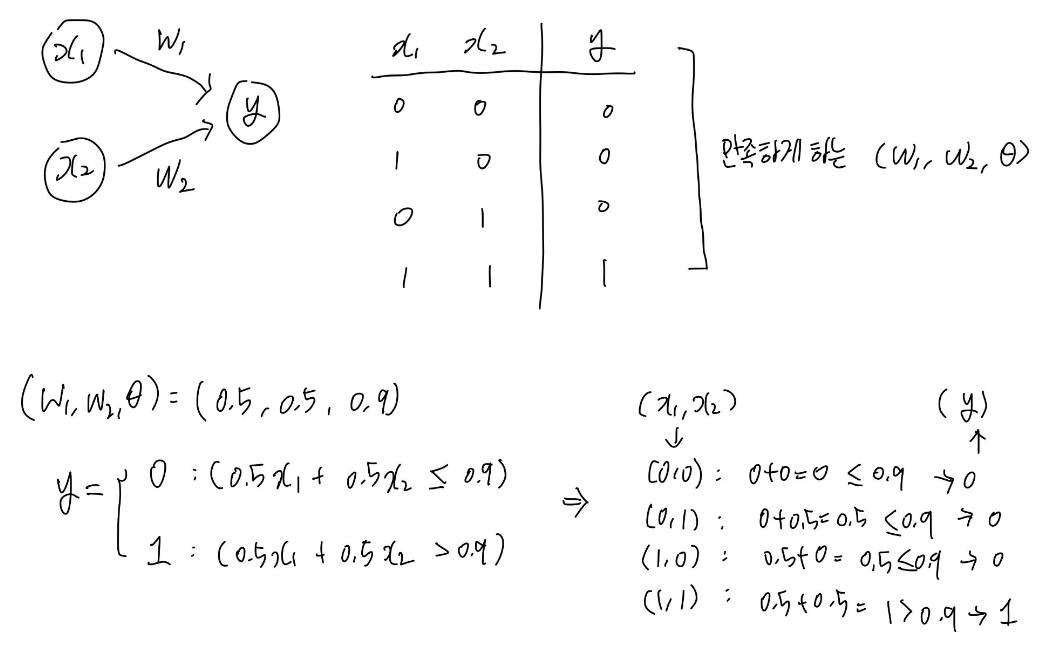 x₁ W₁
y
x₂ W₂
x₁ x₂ y
0 0 0
1 0 0
0 1 0
1 1 1
만족하게 하는 (W₁, W₂, θ)
(W₁, W₂, θ) = (0.5, 0.5, 0.9)
y = { 0 : (0.5x₁ + 0.5x₂ ≤ 0.9)
1 : (0.5x₁ + 0.5x₂ > 0.9)
⇒
(x₁, x₂) (y)
↓ ↑
(0,0) : 0+0=0 ≤ 0.9 → 0
(0,1) : 0+0.5=0.5 ≤0.9 → 0
(1,0) : 0.5+0= 0.5≤0.9 → 0
(1,1) : 0.5+0.5= 1>0.9 → 1